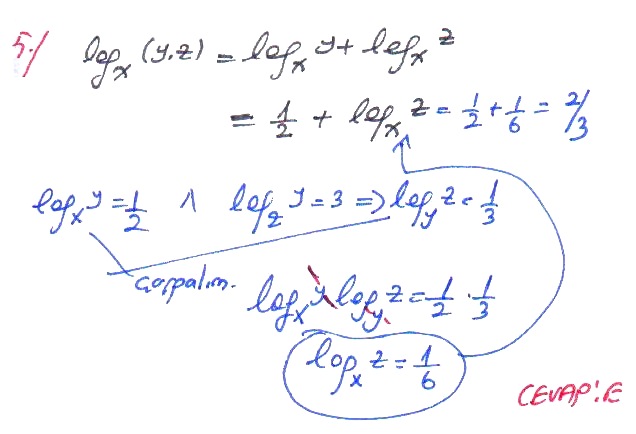 5-/ log_x (y.z) = log_x y + log_x z
= 1/2 + log_x z = 1/2 + 1/6 = 2/3
log_x y = 1/2 ∧ log_z y = 3 => log_y z = 1/3
Çarpalım.
log_x y log_y z = 1/2 . 1/3
log_x z = 1/6
CEVAP: E